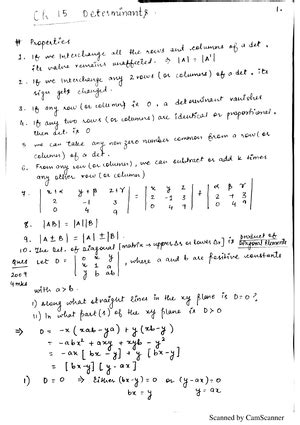 Ch 15. Determinants. 1.
# Properties
1. If we interchange all the rows and columns of a det.,
its value remains unaffected. ⇒ |A| = |A'|
2. If we interchange any 2 rows (or columns) of a det., its
sign gets changed.
3. If any row (or column) is 0, a determinant vanishes
4. If any two rows (or columns) are identical or proportional,
then det. is 0
5. we can take any non zero number common from a row (or
column) of a det.
6. From any row (or column), we can subtract or add k times
any other row (or column)
7. | x+α y+β z+r | = | x y z | + | α β r |
| 2 -1 3 | | 2 -1 3 | | 2 -1 3 |
| 0 4 9 | | 0 4 9 | | 0 4 9 |
8. |AB| = |A||B|
9. |A ± B| = |A| ± |B|
10. The det. of Diagonal [matrix → upper Δs or lower Δs] is product of
Diagonal Elements
Ques Let D = | 0 x y | , where a and b are positive constants
2009 | x 1 a |
4 mks | y b ab |
with a > b.
i) along what straight lines in the xy plane is D = 0?
ii) In what part(s) of the xy plane is D > 0
⇒ D = -x (xab - ya) + y (xb - y)
= -abx² + axy + xyb - y²
= -ax [bx - y] + y [bx - y]
= [bx - y] [y - ax]
i) D = 0 ⇒ Either (bx - y) = 0 or (y - ax) = 0
bx = y y = ax
Scanned by CamScanner